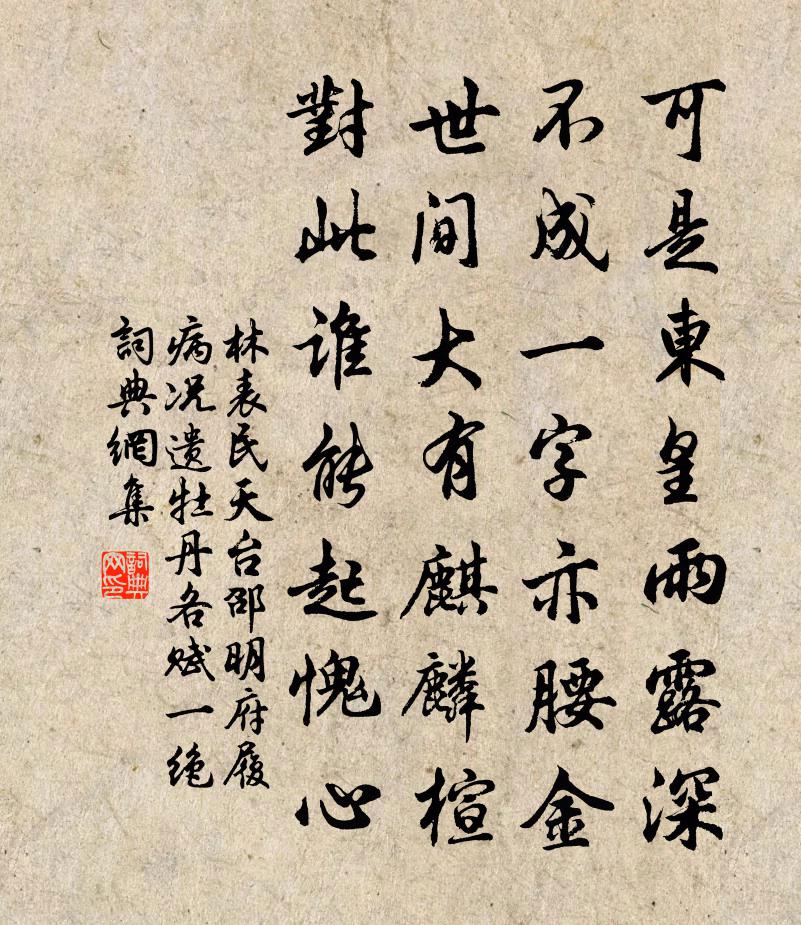 可是東皇雨露深
不成一字亦腰金
世间大有麒麟楦
對此谁能起愧心
林表民天台邵明府履
病况遗牡丹各赋一绝
詞典網集
詞典网印